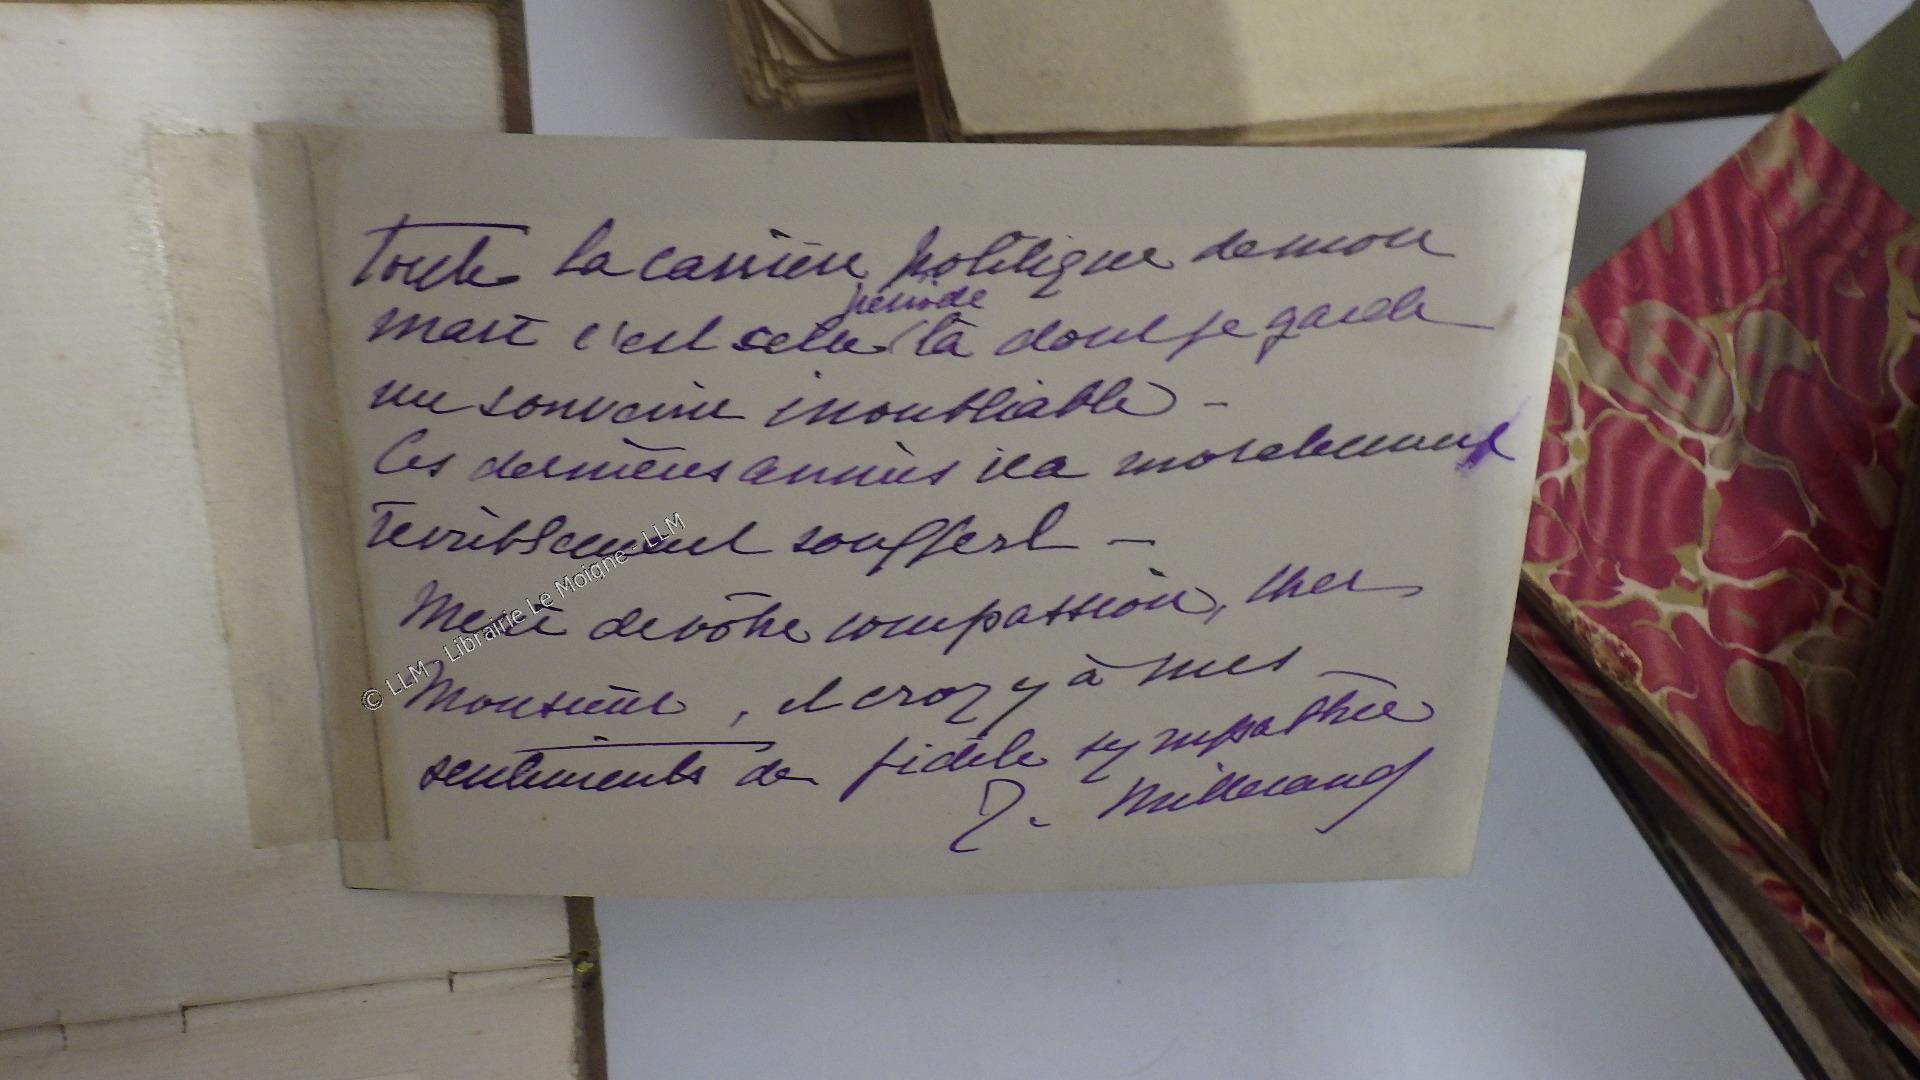 Toute la carrière politique de mon
mari c'est cette période là dont je garde
un souvenir inoubliable -
Ces dernières années il a moralement
terriblement souffert -
Merci de vôtre compassion, cher
Monsieur, et croyez à mes
sentiments de fidèle sympathie
J. Millerand
© LLM - Librairie Le Moigne - LLM